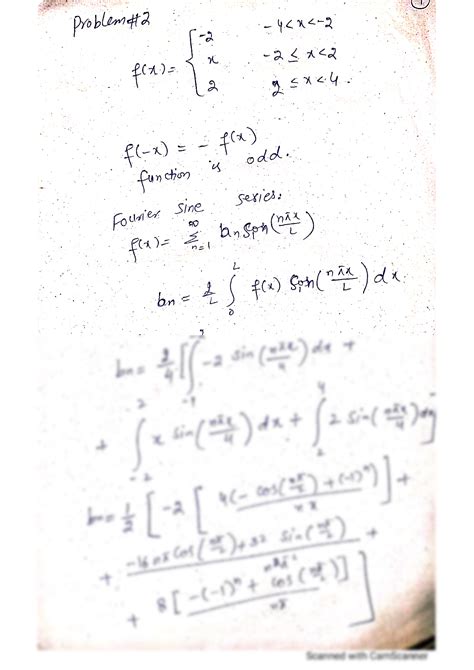 Problem#2
f(x) = { -2 -4<x<-2
x -2 ≤ x<2
2 2 ≤ x<4.
f(-x) = - f(x)
function is odd.
Fourier sine series:
f(x) = ∞ Σ n=1 bn sin(nπx/L)
bn = 2/L ∫ 0 L f(x) sin(nπx/L) dx
bn = 2/4 [∫ -2 sin(nπx/4) dx +
+ ∫ -2 2 x sin(nπx/4) dx + ∫ 2 4 2 sin(nπx/4) dx]
bn = 1/2 [ -2 [ 4(-cos(nπ/2) + (-1)^n) / nπ ] +
+ -16nπ cos(nπ/2) + 32 sin(nπ/2) / +
+ 8[-(-1)^n + cos(nπ/2)] / nπ ]
Scanned with CamScanner